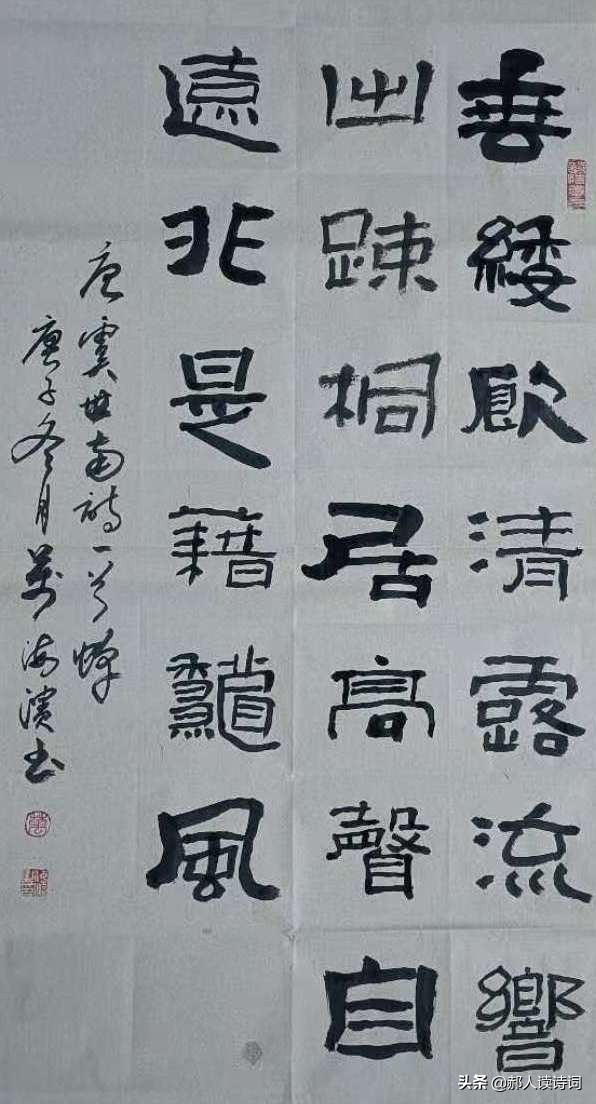 垂緌飲清露流響
出踈桐居高聲自
遠非是藉龝風
唐虞世南詩一首蟬
庚子冬月萬海濱书
头条 @郝人读诗词